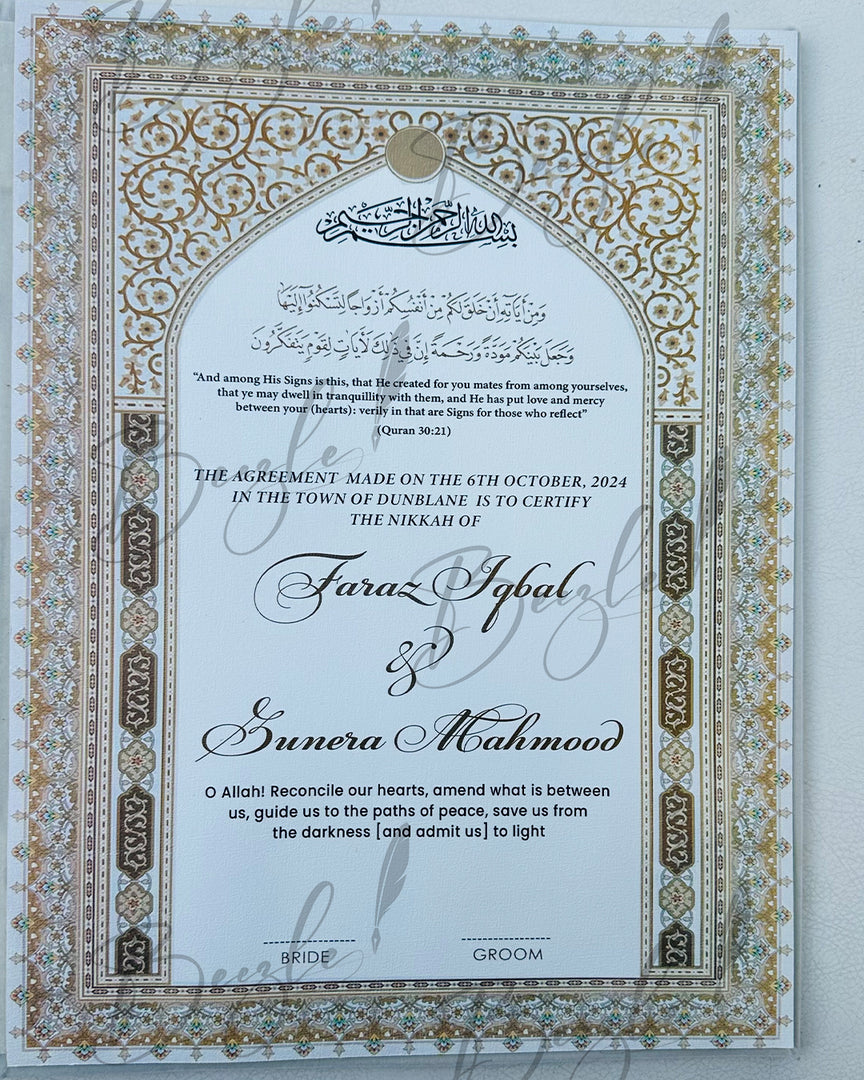 بسم الله الرحمن الرحيم
وَمِنْ أَيَاتِهِ أَنْ خَلَقَ لَكُمْ مِنْ أَنْفُسِكُمْ أَزْوَاجًا لِتَسْكُنُوا إِلَيْهَا
وَجَعَلَ بَيْنَكُمْ مَوَدَّةً وَرَحْمَةً إِنَّ فِي ذَلِكَ لَأَيَاتٍ لِقَوْمٍ يَتَفَكَّرُونَ
“And among His Signs is this, that He created for you mates from among yourselves,
that ye may dwell in tranquillity with them, and He has put love and mercy
between your (hearts): verily in that are Signs for those who reflect”
(Quran 30:21)
THE AGREEMENT MADE ON THE 6TH OCTOBER, 2024
IN THE TOWN OF DUNBLANE IS TO CERTIFY
THE NIKKAH OF
Faraz Iqbal
&
Sunera Mahmood
O Allah! Reconcile our hearts, amend what is between
us, guide us to the paths of peace, save us from
the darkness [and admit us] to light
BRIDE
GROOM